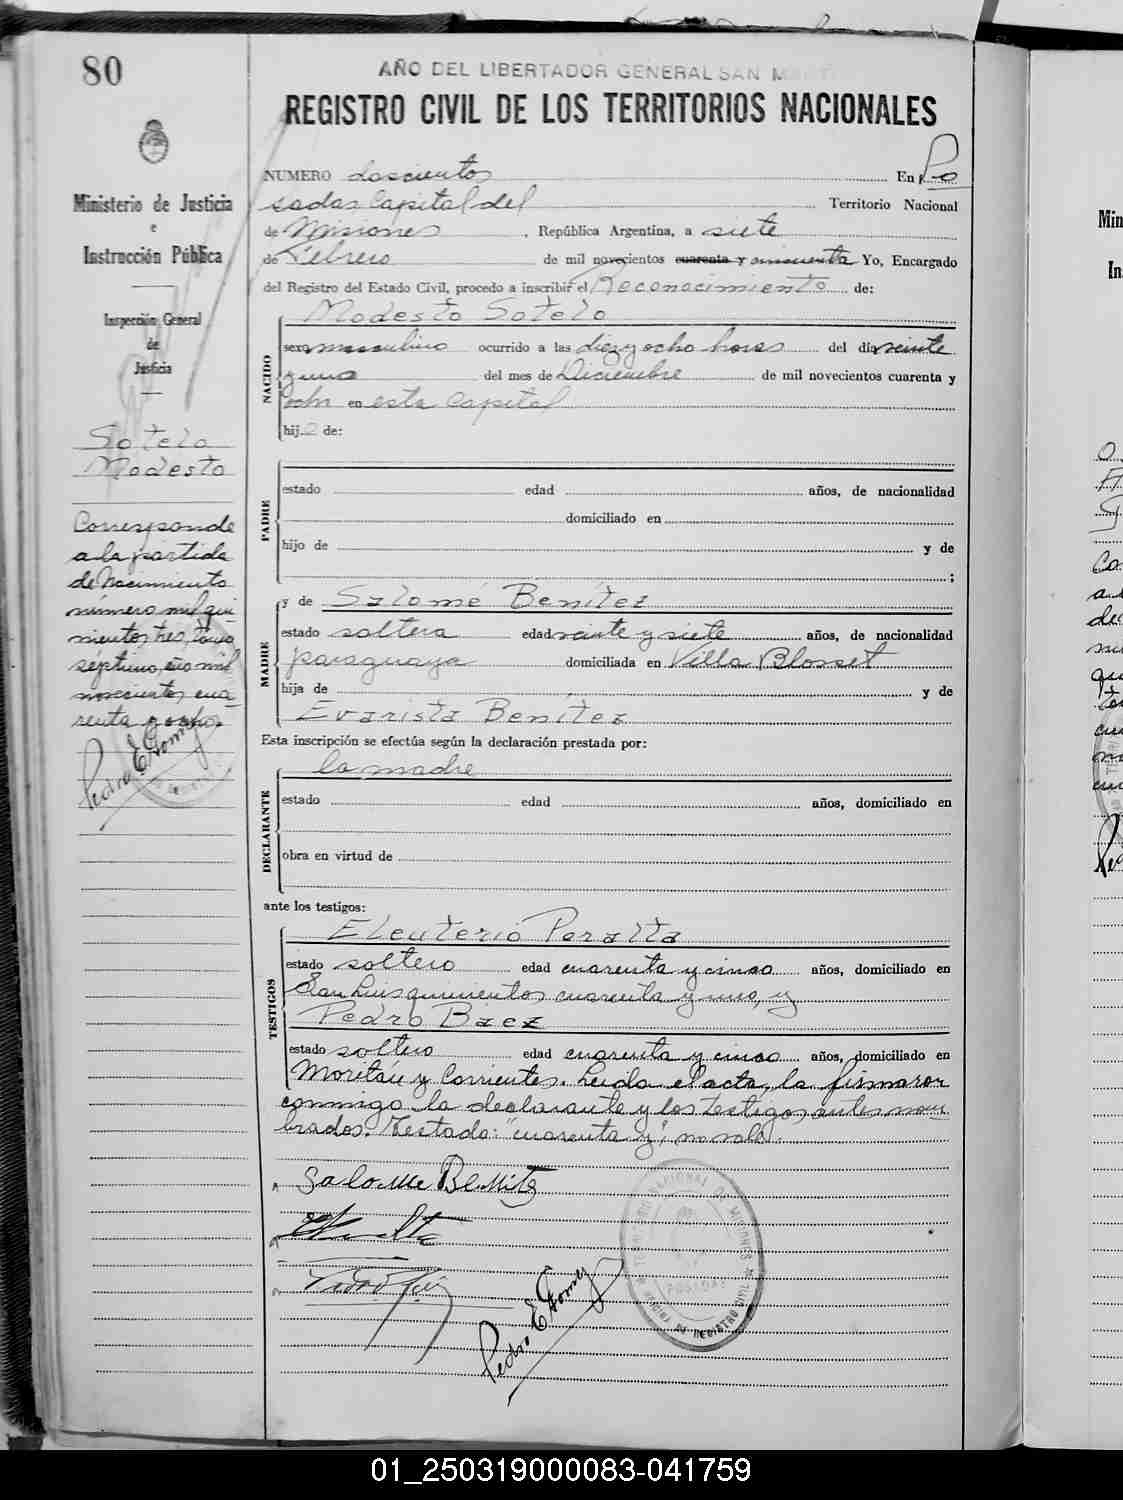 80
AÑO DEL LIBERTADOR GENERAL SAN
REGISTRO CIVIL DE LOS TERRITORIOS NACIONALES
Ministerio de Justicia
e
Instrucción Pública
Inspección General
de
Justicia
Sotelo
Modesto
Corresponde
a la partida
de Nacimiento
número mil qui
nientos tres, tomo
séptimo, año mil
novecientos cua-
renta y ocho.
Pedro E Gomez
NUMERO doscientos En Po
sadas Capital del Territorio Nacional
de Misiones, República Argentina, a siete
de Febrero de mil novecientos cuarenta y cincuenta Yo, Encargado
del Registro del Estado Civil, procedo a inscribir el Reconocimiento de:
NACIDO
Modesto Sotelo
sexo masculino ocurrido a las diez y ocho horas del día veinte
y uno del mes de Diciembre de mil novecientos cuarenta y
ocho en esta Capital
hijo de:
PADRE
estado edad años, de nacionalidad
domiciliado en
hijo de y de
;
MADRE
y de Salomé Benítez
estado soltera edad veinte y siete años, de nacionalidad
paraguaya domiciliada en Villa Blosset
hija de y de
Evarista Benítez
Esta inscripción se efectúa según la declaración prestada por:
DECLARANTE
la madre
estado edad años, domiciliado en
obra en virtud de
ante los testigos:
TESTIGOS
Eleuterio Peralta
estado soltero edad cuarenta y cinco años, domiciliado en
San Luis quinientos cuarenta y uno, y
Pedro Baez
estado soltero edad cuarenta y cinco años, domiciliado en
Moritán y Corrientes. Leída el acta, la firmaron
conmigo la declarante y los testigos antes nom-
brados. Testado: "cuarenta y", no vale.
Salome Benitez
Pedro E Gomez
TERRITORIO NACIONAL DE MISIONES
POSADAS
OFICINA DE REGISTRO CIVIL
Min
In
01_250319000083-041759